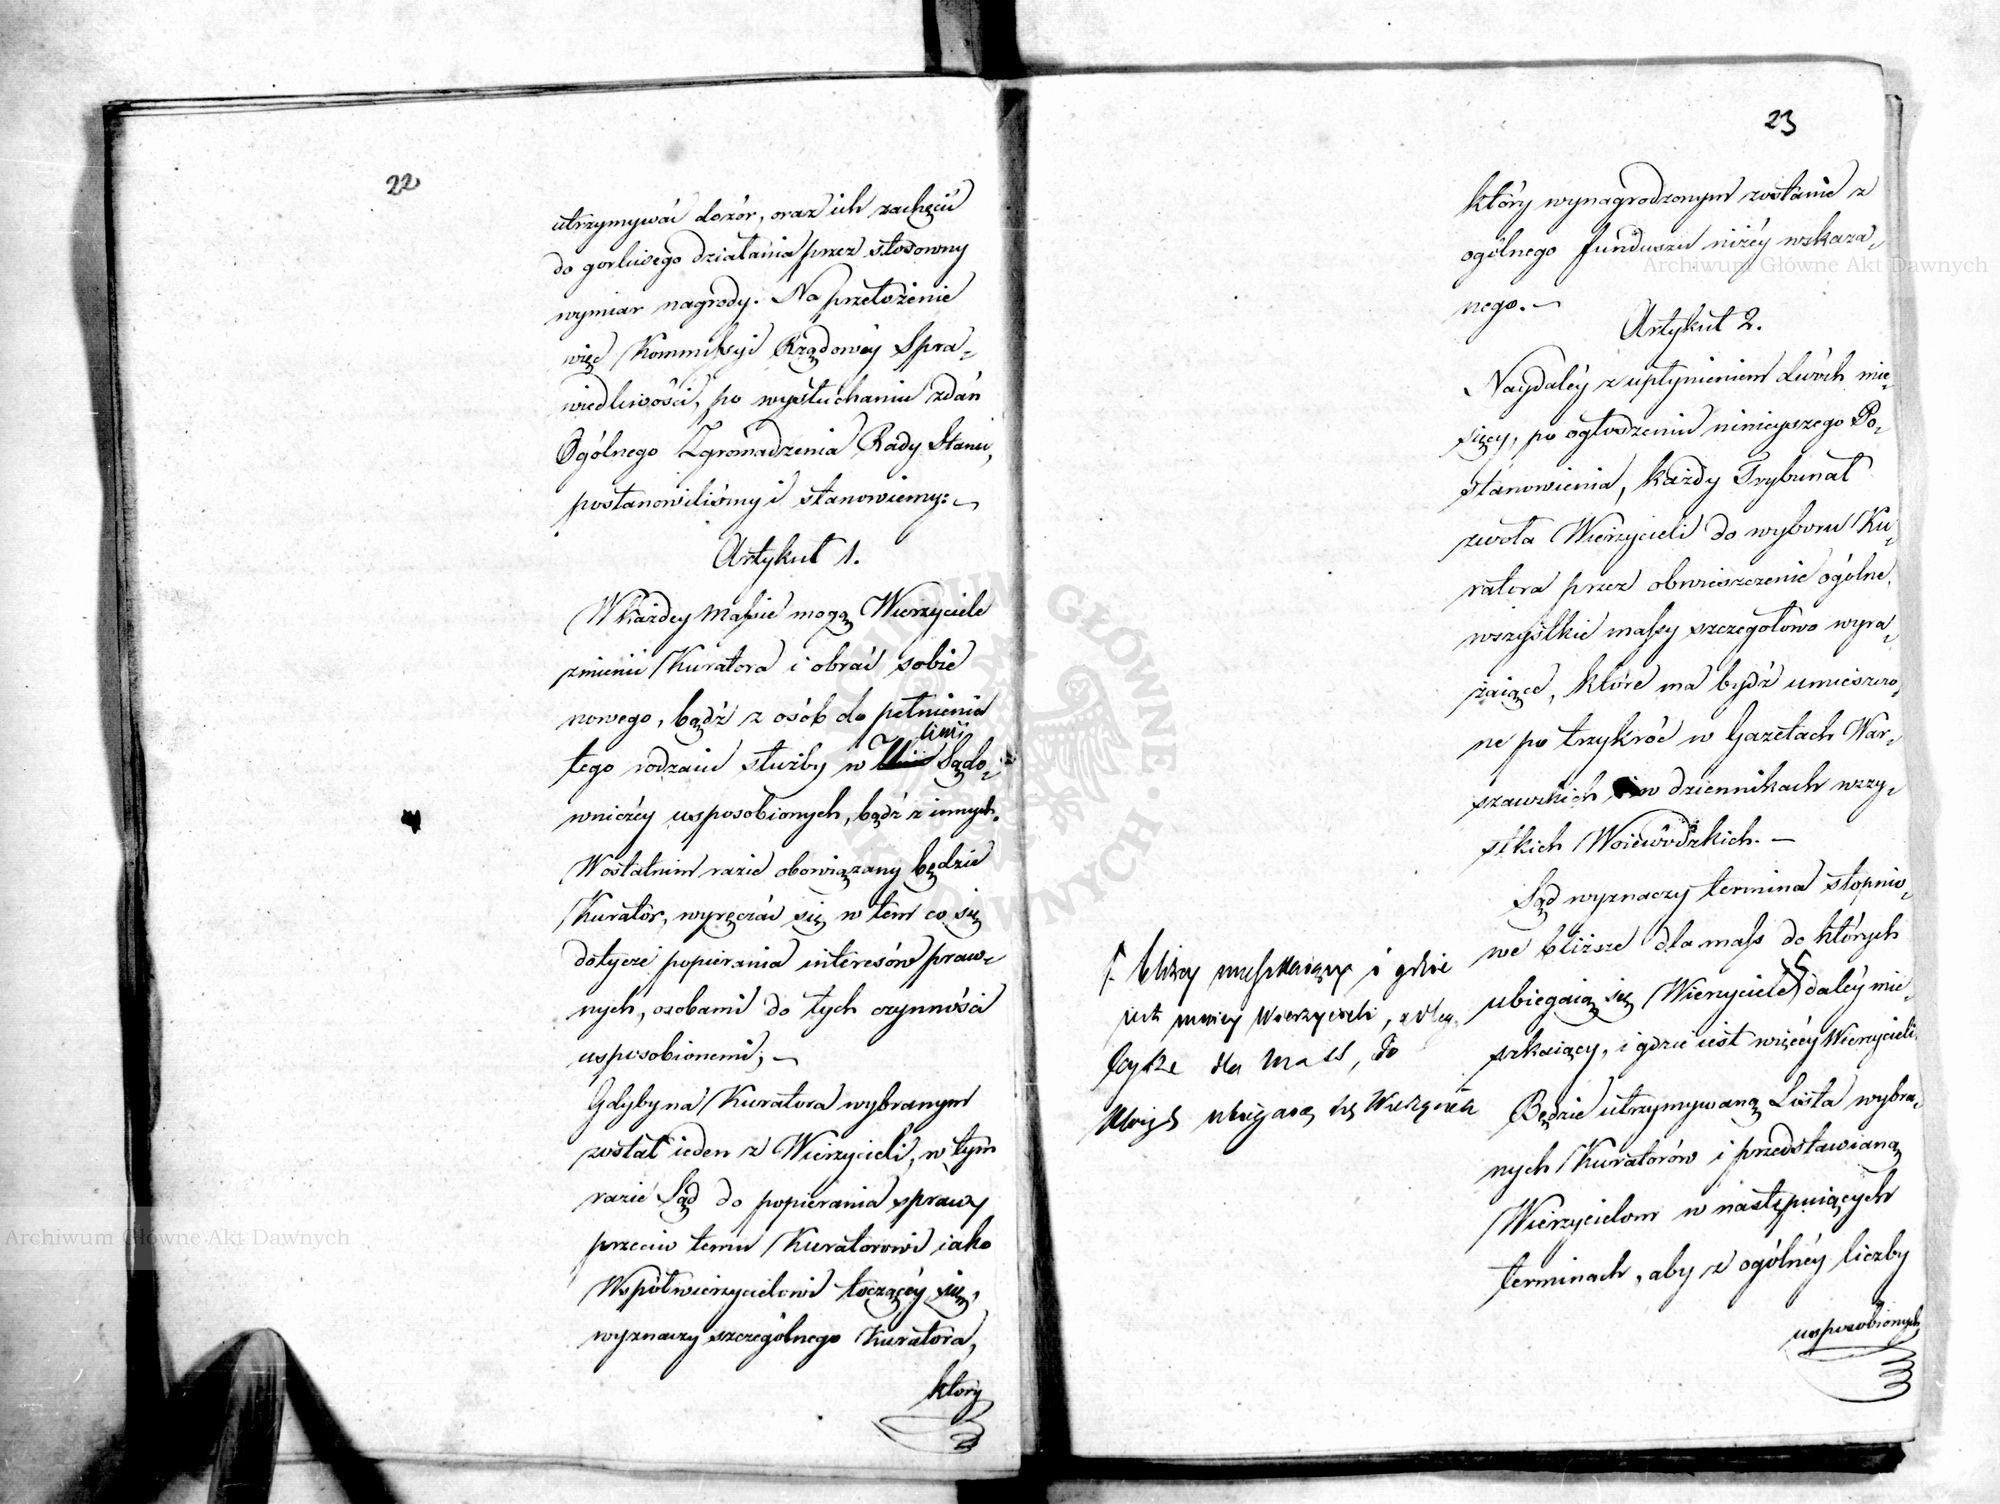 22
utrzymywać dozór, oraz ich zachęcić
do gorliwego działania przez stosowny
wymiar nagrody. Na przełożenie
więc Kommissyi Rządowéy Spra„
wiedliwości, po wysłuchaniu zdań
Ogólnego Zgromadzenia Rady Stanu,
postanowiliśmy i stanowiemy: —
Artykuł 1.
W każdey massie mogą Wierzyciele
zmienić Kuratora i obrać sobie
nowego, bądź z osób do pełnienia
linii
tego rodzaiu służby w Sądo„
wniczéy usposobionych, bądź z innych.
W ostatnim razie obowiązany będzie
Kurator, wyręczać się w tém co się
dotycze popierania interesów praw„
nych, osobami do tych czynności
usposobionemi; —
Gdyby na Kuratora wybranym
został ieden z Wierzycieli, w tym
razie Sąd do popierania sprawy
przeciw temu Kuratorowi iako
Współwierzycielowi toczącéy się,
wyznaczy szczególnego Kuratora,
który
23
który wynagrodzonym zostanie z
ogólnego funduszu niżéy wskaza„
nego. —
Artykuł 2.
Naydaléy z upłynieniem dwóch mie„
sięcy, po ogłoszeniu ninieyszego Po„
stanowienia, każdy Trybunał
zwoła Wierzycieli do wyboru Ku„
ratora przez obwieszczenie ogólne,
wszystkie massy szczegółowo wyra„
żaiące, które ma bydź umieszczo„
ne po trzykróć w Gazetach War„
szawskich i w dziennikach wszy„
stkich Woiewódzkich. —
Sąd wyznaczy termina stopnio„
we bliższe dla mass do których
ubiegaią się Wierzyciele daléy mie„
szkaiący, i gdzie iest więcéy Wierzycieli.
Będzie utrzymywaną Lista wybra„
nych Kuratorów i przedstawianą
Wierzycielom w następuiących
terminach, aby z ogólnéy liczby
usposobionych
bliżey mieszkaiący i gdzie
iest mniey Wierzycieli,
dla mass, do
których ubiegaią się Wierzyciele
Archiwum Główne Akt Dawnych
Archiwum Główne Akt Dawnych
ARCHIWUM GŁÓWNE AKT DAWNYCH